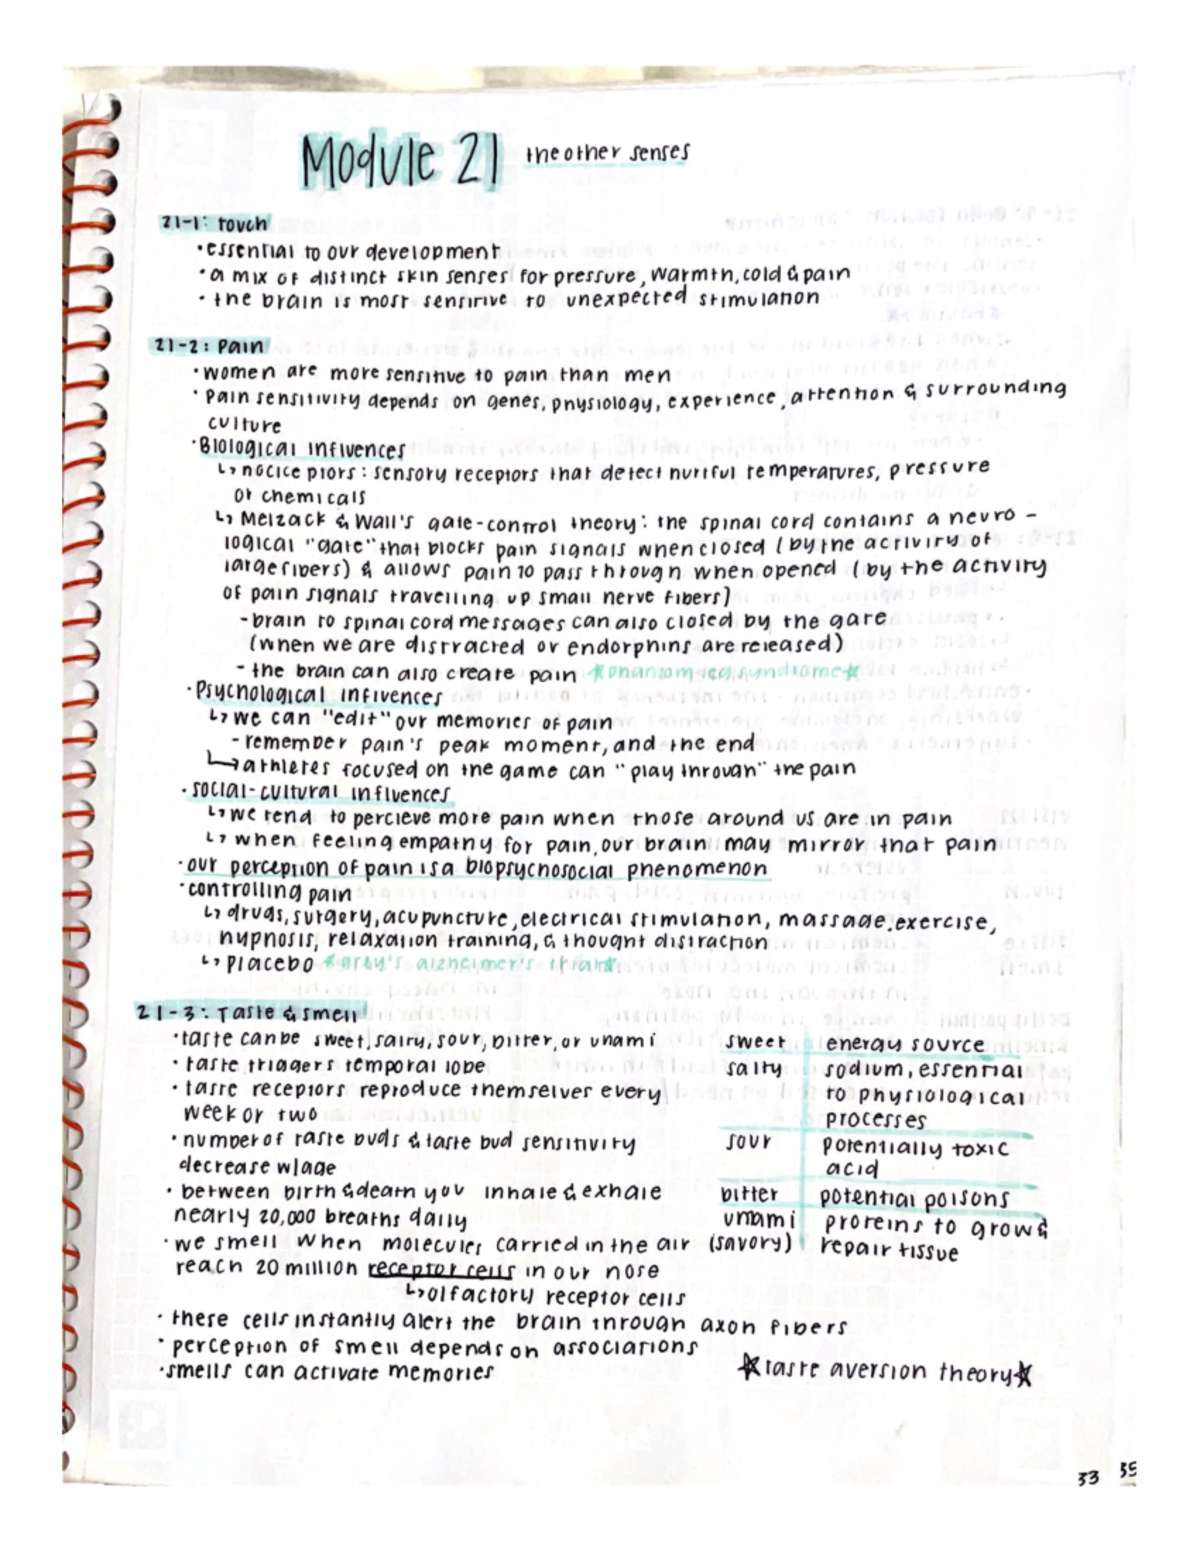 Module 21 the other senses
21-1: touch
·essential to our development
·a mix of distinct skin senses for pressure, warmth, cold & pain
·the brain is most sensitive to unexpected stimulation
21-2: Pain
·women are more sensitive to pain than men
·pain sensitivity depends on genes, physiology, experience, attention & surrounding
culture
·Biological influences
↳nociceptors: sensory receptors that detect hurtful temperatures, pressure
or chemicals
↳Melzack & Wall's gate-control theory: the spinal cord contains a neuro-
logical "gate" that blocks pain signals when closed (by the activity of
large fibers) & allows pain to pass through when opened (by the activity
of pain signals travelling up small nerve fibers)
-brain to spinal cord messages can also closed by the gate
(when we are distracted or endorphins are released)
-the brain can also create pain ☆phantom leg syndrome☆
·Psychological influences
↳we can "edit" our memories of pain
-remember pain's peak moment, and the end
↳athletes focused on the game can "play through" the pain
·social-cultural influences
↳we tend to percieve more pain when those around us are in pain
↳when feeling empathy for pain, our brain may mirror that pain
·our perception of pain is a biopsychosocial phenomenon
·controlling pain
↳drugs, surgery, acupuncture, electrical stimulation, massage, exercise,
hypnosis, relaxation training, & thought distraction
↳placebo ☆ alzheimer's trial☆
21-3: Taste & smell
·taste can be sweet, salty, sour, bitter, or umami
·taste triggers temporal lobe
·taste receptors reproduce themselves every
week or two
·number of taste buds & taste bud sensitivity
decrease w/age
·between birth & death you inhale & exhale
nearly 20,000 breaths daily
·we smell when molecules carried in the air
reach 20 million receptor cells in our nose
↳olfactory receptor cells
·these cells instantly alert the brain through axon fibers
·perception of smell depends on associations
·smells can activate memories
sweet energy source
salty sodium, essential
to physiological
processes
sour potentially toxic
acid
bitter potential poisons
umami proteins to grow &
(savory) repair tissue
☆taste aversion theory☆
33 35